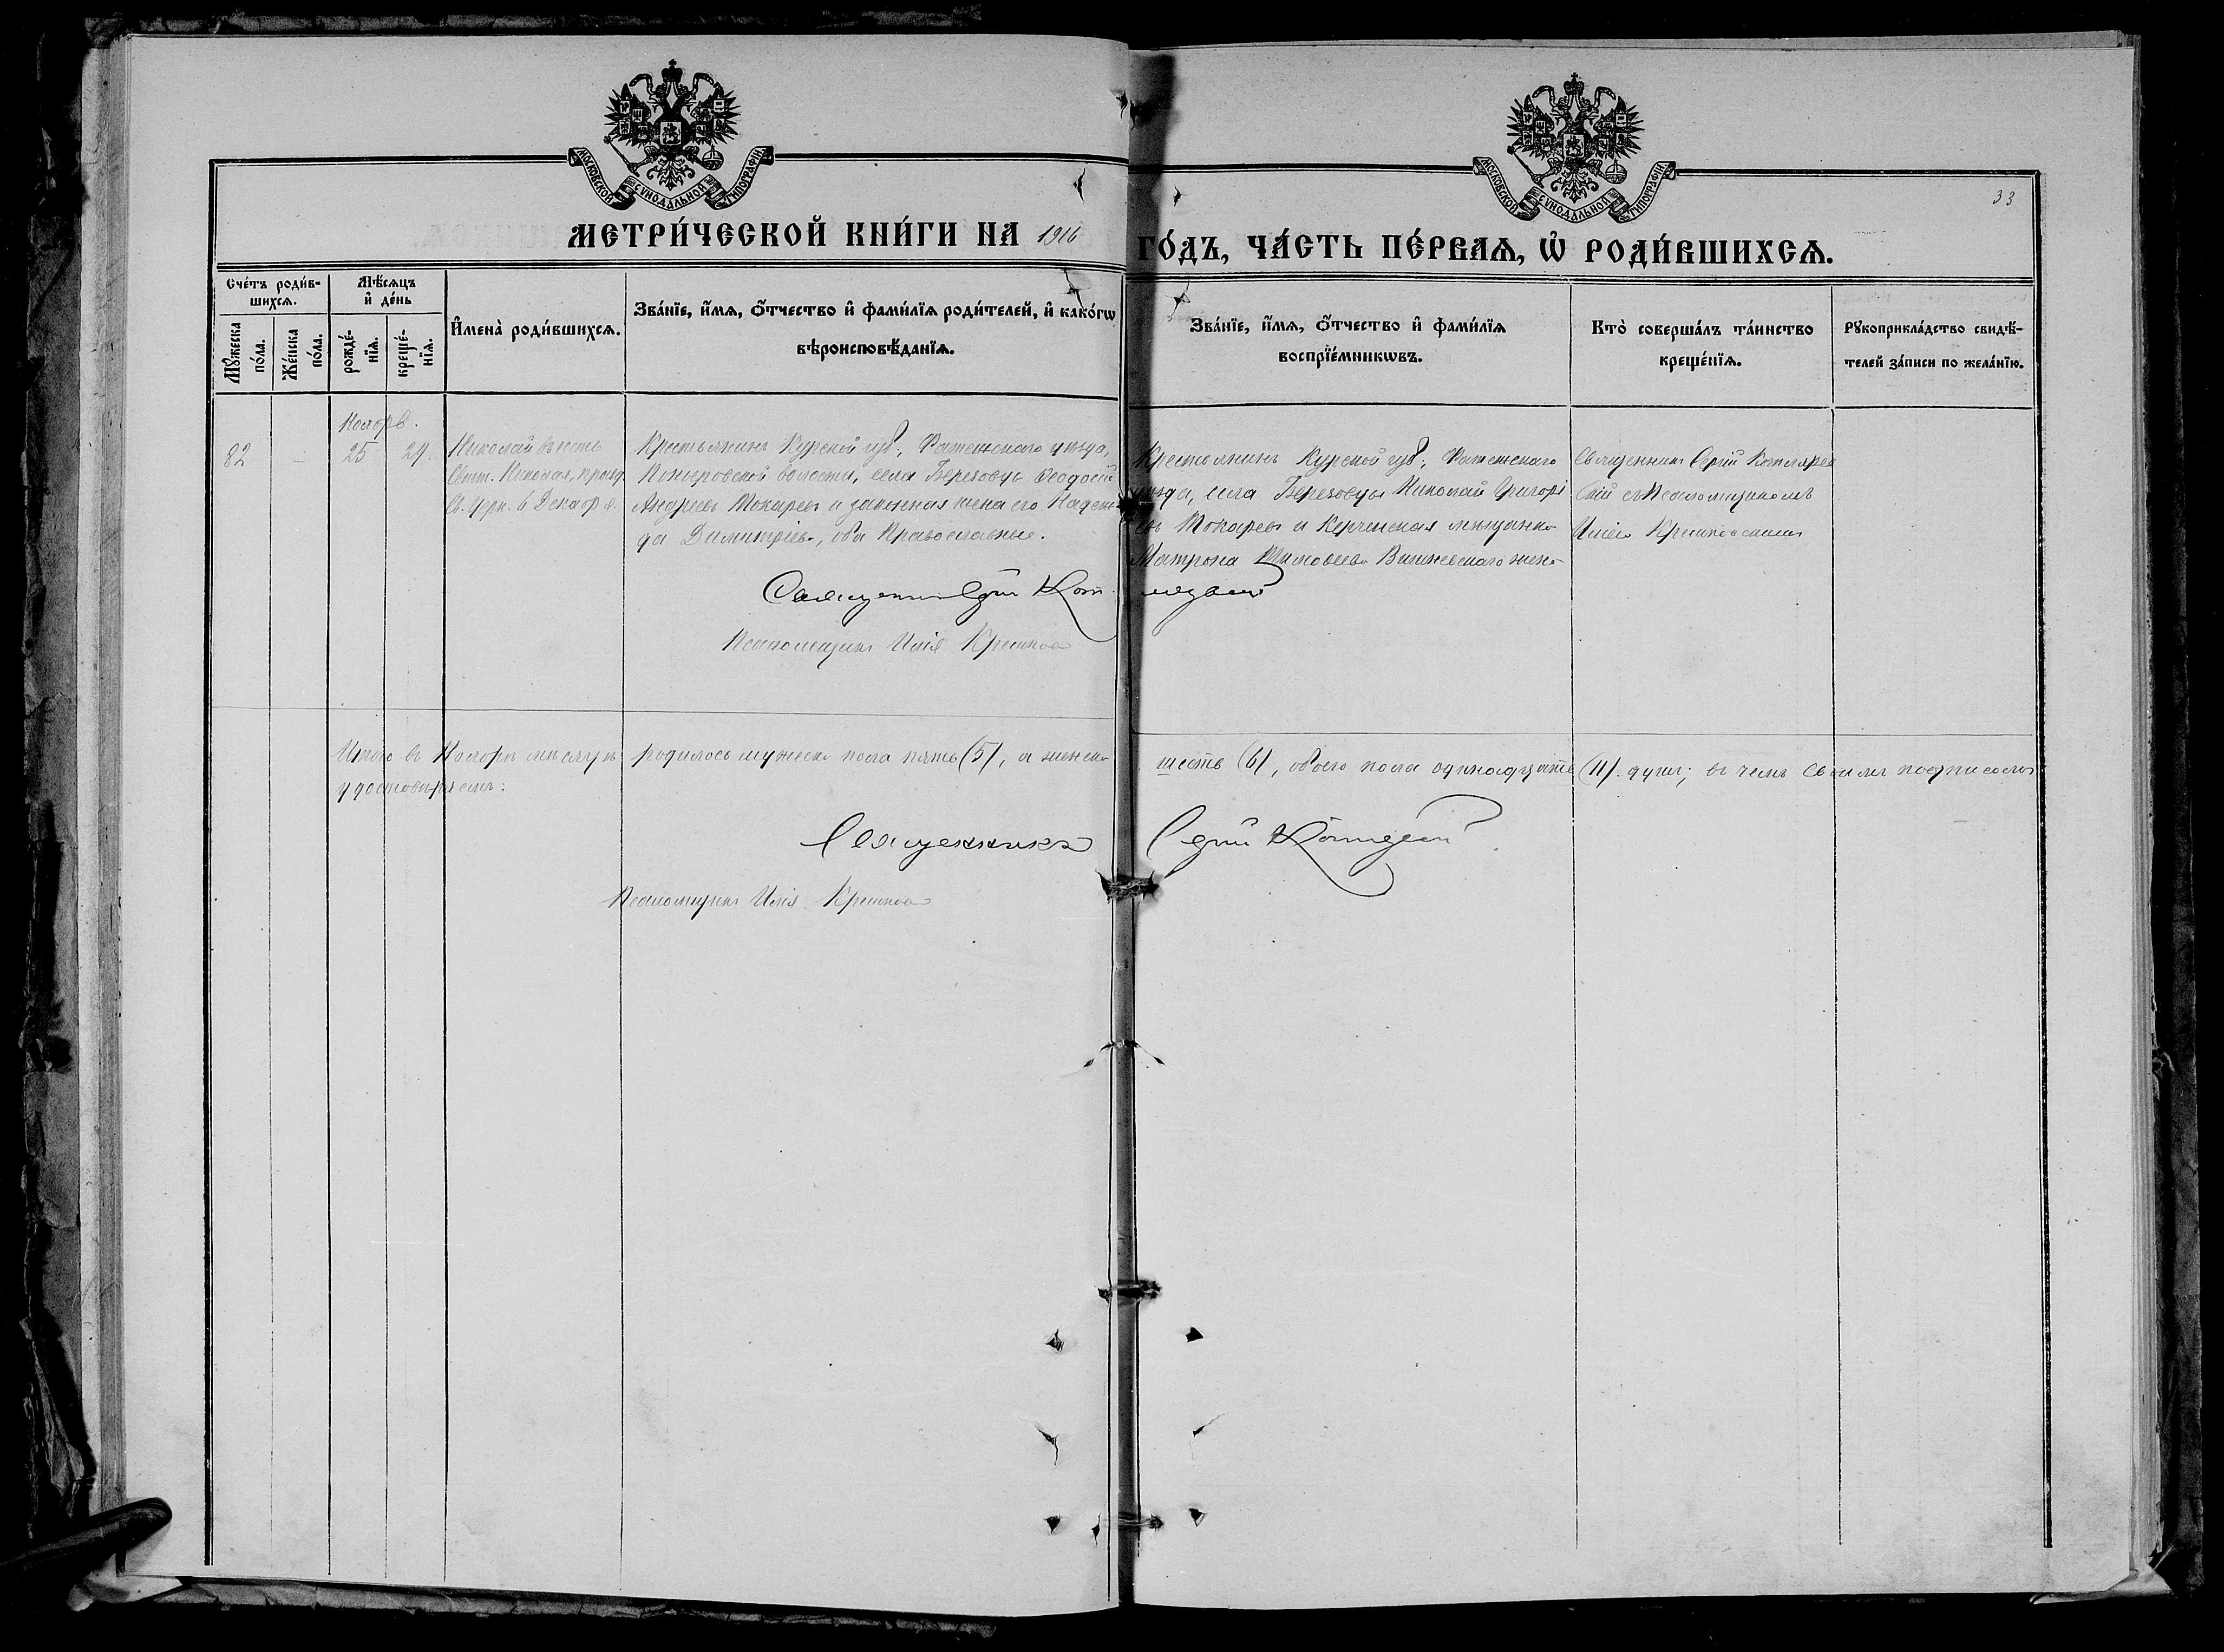 МОСКОВСКОЙ СѴНОДАЛЬНОЙ ТИПОГРАФІИ.
МОСКОВСКОЙ СѴНОДАЛЬНОЙ ТИПОГРАФІИ.
33
МЕТРИ́ЧЕСКОЙ КНИ́ГИ НА 1916 ГО́ДЪ, ЧА́СТЬ ПЕ́РВАѦ, Ѡ РОДИ́ВШИХСѦ.
Сче́тъ роди́в-
шихсѧ.
Мꙋ́жеска по́ла.
Же́нска по́ла.
Мѣ́сѧцъ
и де́нь
рожде́-
нїѧ.
креще́-
нїѧ.
Имена̀ роди́вшихсѧ.
Зва́нїе, и́мѧ, о́тчество и фами́лїѧ роди́телей, и како́гѡ
вѣроисповѣ́данїѧ.
Зва́нїе, и́мѧ, о́тчество и фами́лїѧ
воспрїе́мникѡвъ.
Кто̀ соверша́лъ та́инство
креще́нїѧ.
Рꙋкоприкла́дство свидѣ́-
телей за́писи по жела́нїю.
Ноябрь.
82 – 25 29.
Николай въ честь
Свят. Николая, празд.
Св. Церк. 6 Декабря.
Крестьянинъ Курской губ., Фатежскаго уѣзда,
волости, села Березовца Ѳеодосій
Андреевъ Токаревъ и законная жена его Надеж-
да Димитріева, оба Православные.
Крестьянинъ Курской губ., Фатежскаго
уѣзда, села Березовца Николай Григорі
евъ Токаревъ и Керченская мѣщанка
Матрона жена
Священникъ Сергій Котляров
скій съ Псаломщикомъ
Иліею
Священникъ Сергій
Псаломщикъ Илія
Итого въ Ноябрѣ мѣсяцѣ родилось мужеска пола пять (5), а женска шесть (6), обоего пола одинадцать (11) душъ; въ чемъ своимъ подписомъ
удостовѣряемъ:
Священникъ Сергій
Псаломщикъ Илія